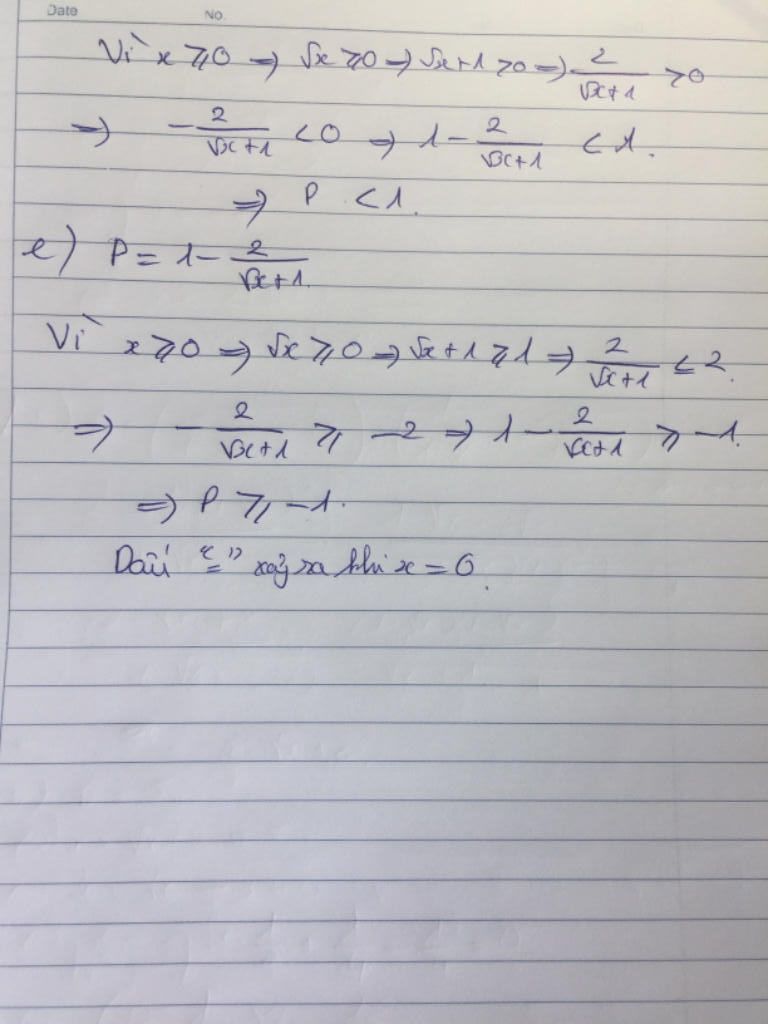 Date No.
Vì x ⩾ 0 => √x ⩾ 0 => √x+1 > 0 => 2/(√x+1) > 0
=> -2/(√x+1) < 0 => 1 - 2/(√x+1) < 1.
=> P < 1.
e) P = 1 - 2/(√x+1).
Vì x ⩾ 0 => √x ⩾ 0 => √x+1 ⩾ 1 => 2/(√x+1) ≤ 2.
=> -2/(√x+1) ⩾ -2 => 1 - 2/(√x+1) ⩾ -1.
=> P ⩾ -1.
Dấu "=" xảy ra khi x = 0.